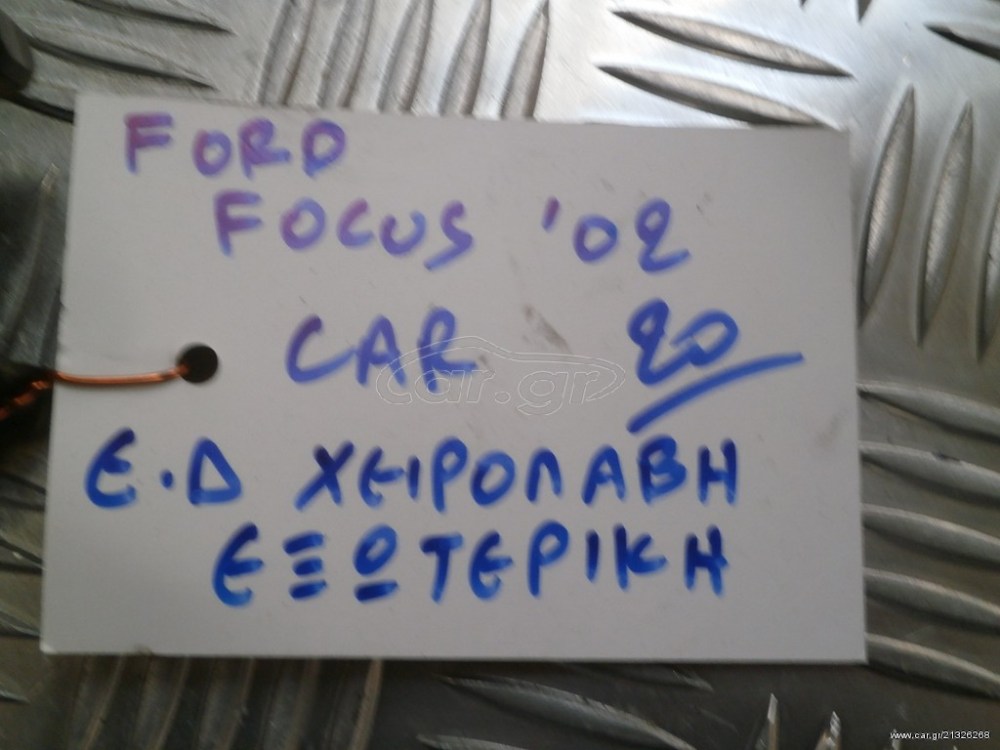 FORD
FOCUS '02
CAR 20
Ε.Δ ΧΕΙΡΟΛΑΒΗ
ΕΞΩΤΕΡΙΚΗ
car.gr
www.car.gr/21326268